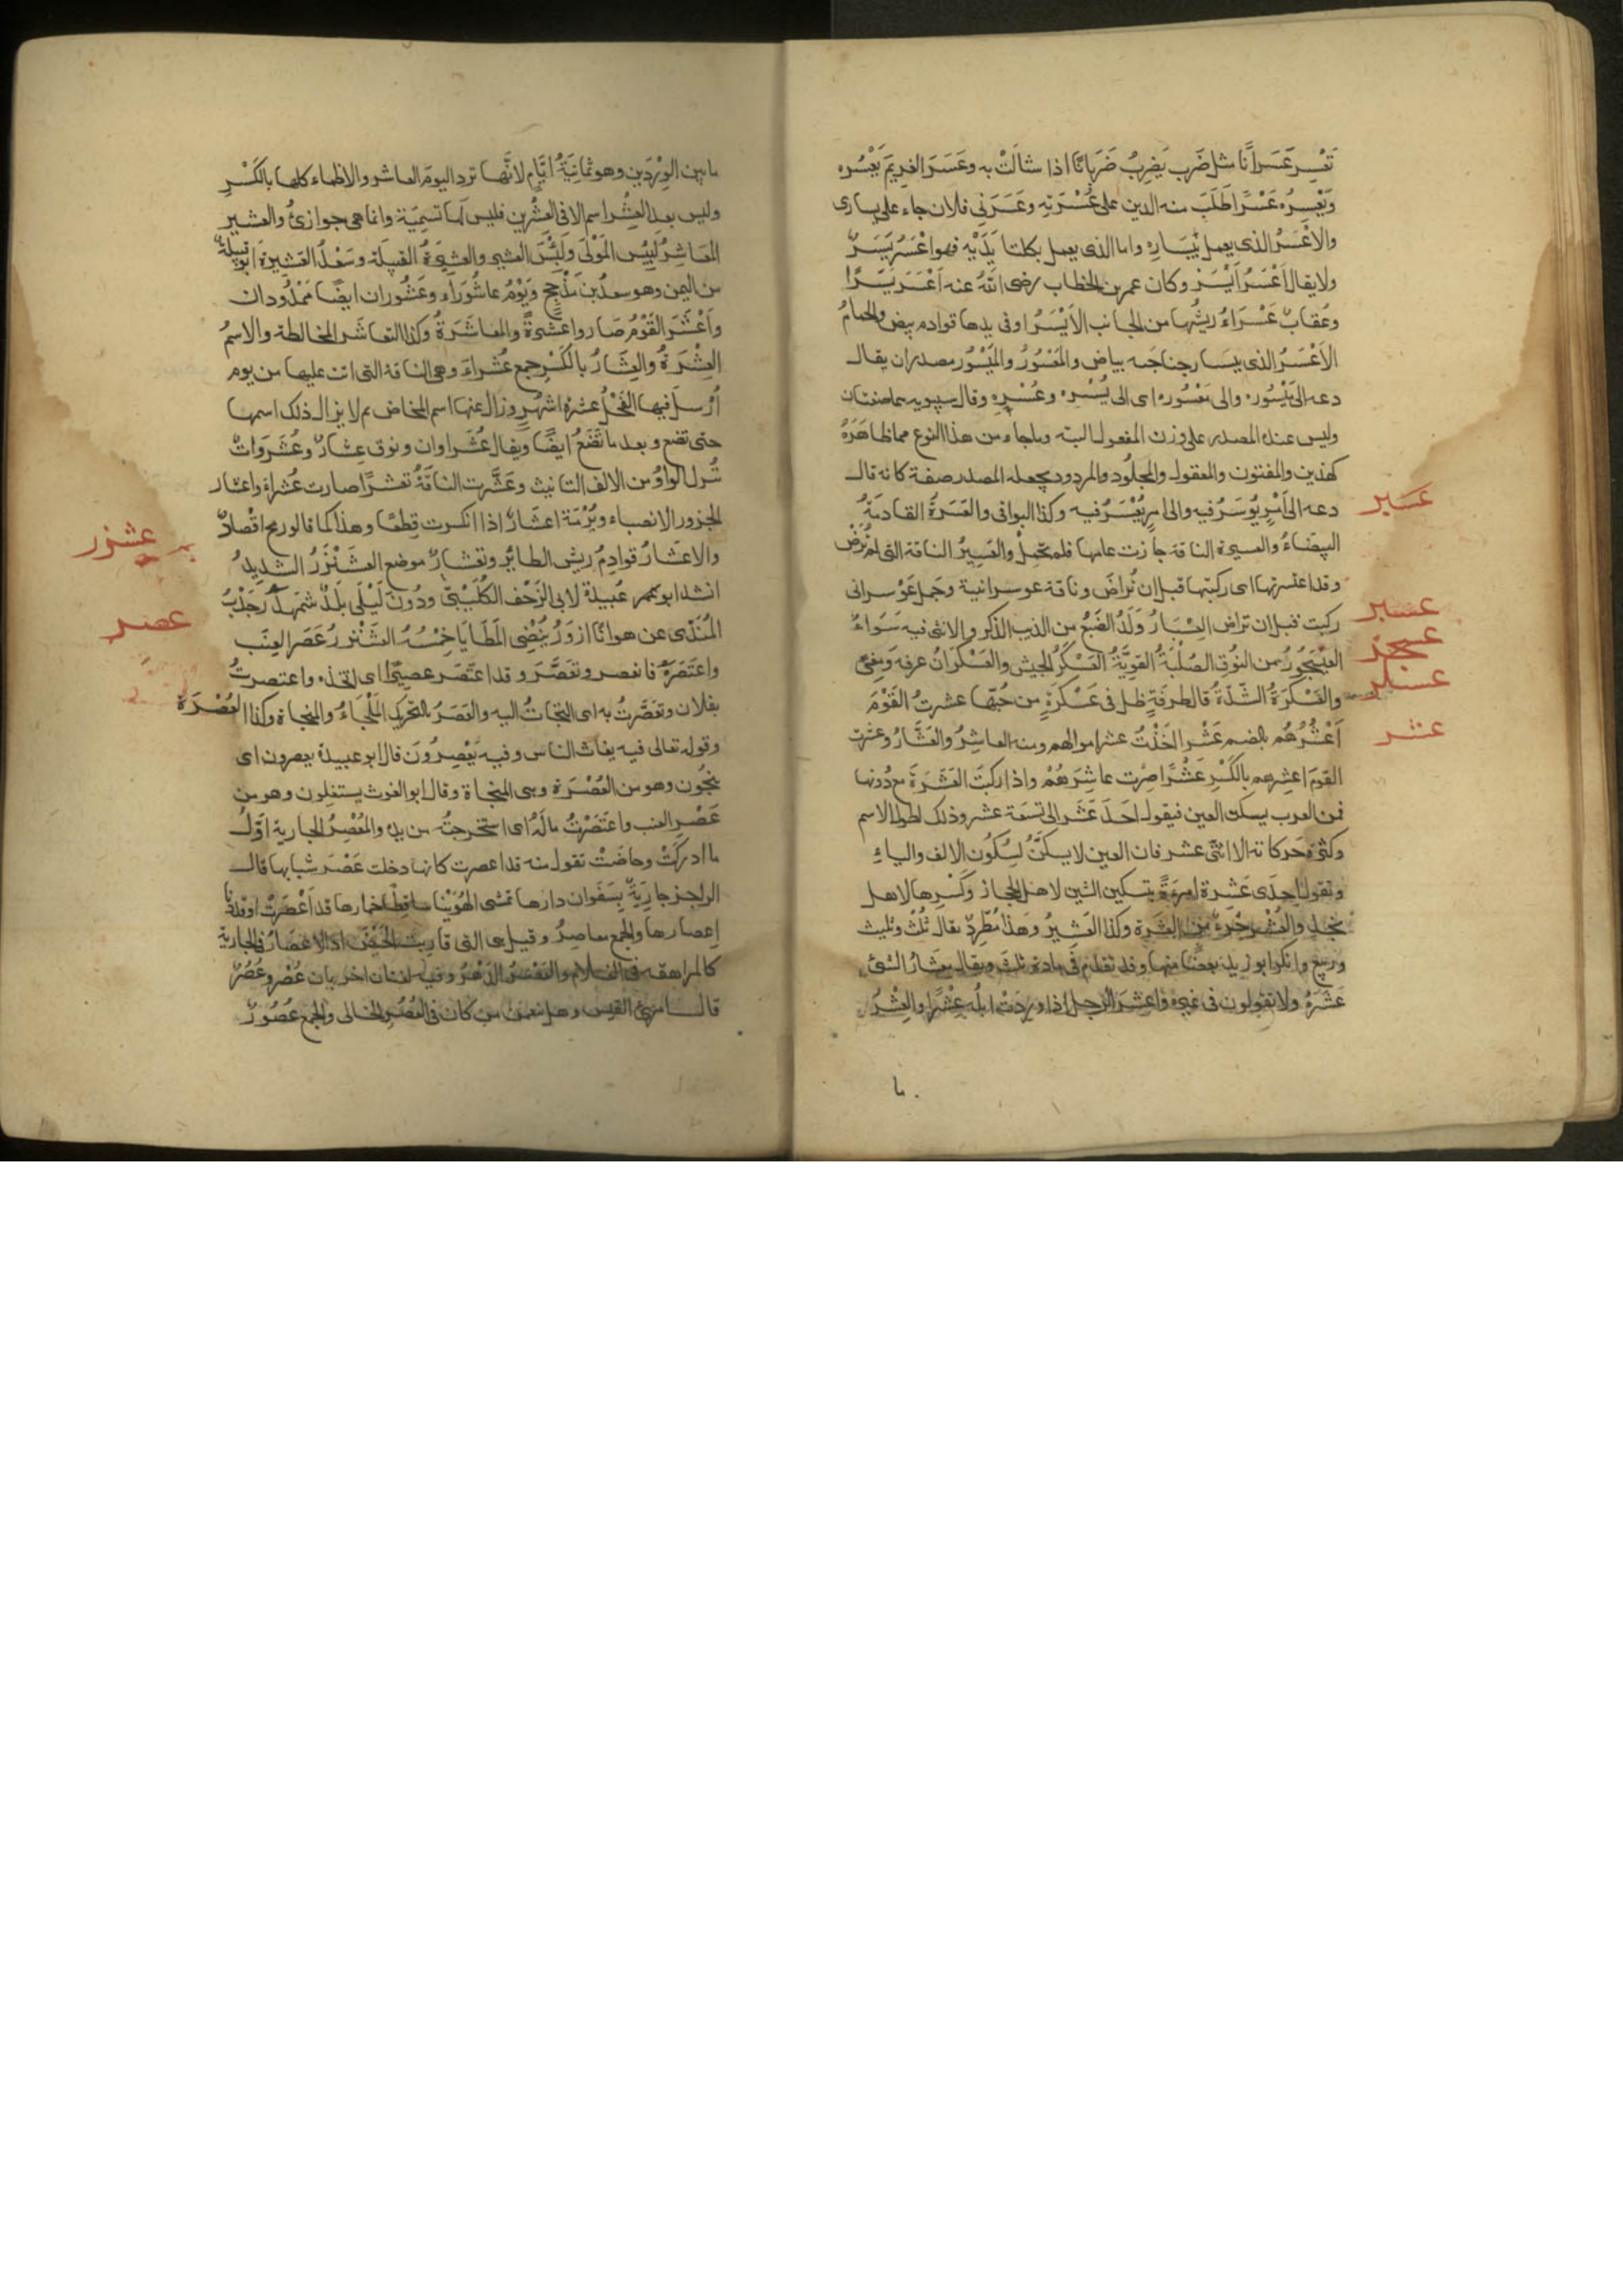 تَعْسِر عَسَرانًا مثل ضَرب يَضرِبُ ضَرَبانًا اذا شالَتْ به وعَسَرَ الغريمَ يَعْسُره
ويَعْسِرُه عَسْرًا طَلَبَ منه الدين على عُسْرَتِه وعَسَرَنى فلان جاء على يسارى
والاعْسَرُ الذى يعمل بيَسَارِه واما الذى يعمل بكلتا يَدَيْه فهو اعْسَرُ يَسَرٌ
ولا يقال اَعْسَرُ اَيْسَرُ وكان عمر بن الخطاب رضى الله عنه اَعْسَرَ يَسَرًا
وعُقابٌ عَسْراءُ ريشُها من الجانب الاَيْسَرُ اوفى يدها قوادم بيض والحمامُ
الاَعْسَرُ الذى بيسار جناحه بياض والمَعْسُورُ والمَيْسُور مصدران يقال
دعه الى مَيْسُوره والى مَعْسُوره اى الى يُسْرِه وعُسْرِه وقال سيبويه هما صفتان
وليس عنده المصدر على وزن المفعول البته وما جاء من هذا النوع مما ظاهَرَهُ
كهذين والمفتون والمعقول والمجلُود والمردود يجعله المصدر صفة كانه قال
دعه الى اَمْرٍ يُوسَرُ فيه والى امرٍ يُعْسَرُ فيه وكذا البواقى والعَسَرَةُ القادمَةُ
البيضَاءُ والعسير الناقة جازت عامها فلم تحمِلْ والعَسِيرُ الناقة التى لم تُرَضْ
وقد اعتسرتها اى ركبتها قبل ان تُراضَ وناقة عوسرانية وجمل عَوْسرانى
ركبت قبل ان تراض العِسْبَارُ وَلَدُ الضَبُعِ من الذيب الذكر والانثى فيه سَواءٌ
العَيْسَجُورُ من النُوقِ الصُلْبَةُ القويَّةُ العَسْكَرُ الجيش والعَسْكَرَانُ عرفة ومِنًى
والعَسْكَرَةُ الشِّدَّةُ قال طرفة ظل فى عَسْكَرَةٍ من حُبّها عشرتُ القَوْمَ
اَعْشُرُهُم بالضم عَشْرا اخَذْتُ عشر اموالهم ومنه العاشِرُ والعَشَّارُ وعشرت
القومَ اعشِرهم بالكَسْرِ عَشْرًا صِرْت عاشِرَهُمْ واذا ركبتَ العَشَرَةَ مع دُونها
فمن العرب يسكن العين فيقول احَدَ عَْشَر الى تسعَة عشر وذلك لطول الاسم
وكثرة حَركاته الا اثنى عشر فان العين لا يسكّنُ لسكُون الالف والياءِ
وتقول احدَى عَشْرة امرءةً بتسكين الشين لاهل الحجاز وكَسْرِها لاهل
نجد والعُشْر جُزءٌ من العَشَرة وكذا العَشِيرُ وهَذا مُطَّرِدٌ يقال ثُلُثٌ وثليث
وربيع وانكر ابو زيد بعضًا منها وقد تقدّم فى مادة ثلث ويقال معْشارُ الشئ
عشْرُهُ ولا تقولون فى غيره واعشَرَ الرجل اذا ورَدَتْ ابلُه عِشْرًا والعِشْرُ
ما
عسبر
عسبر
عسجر
عسكر
عشر
ما بين الوِرْدَين وهو ثمانيَةُ اَيَّام لانَّها ترد اليومَ العاشر والاظماء كلها بالكَسْرِ
وليس بعد العِشْر اسم الا فى العِشْرين فليس لها تسمِيَة وانما هى جوازئُ والعشير
المعَاشِرُ لَبِئْس المَوْلَى وَلَبِئْسَ العشير والعشيرةُ القبيلة وسَعْدُ العَشيرَةِ ابو قبيلَةٍ
من اليمن وهو سعدُ بن مَذْحِج ويَوْمُ عاشُورَاءِ وعَشُوراء ايضًا ممْدُودان
واَعْشَرَ القَوْمُ صَاروا عَشرةً والمعاشَرَةُ وكذا التعاشُر المخالطة والاسمُ
العِشْرَةُ والعِشَارُ بالكَسْرِ جمع عُشَراءَ وهى الناقة التى اتت عليها من يوم
اُرْسل فيها الفَحْلُ عشرة اشهُرٍ وزال عنها اسم المخاض ثم لا يزال ذلك اسمها
حتى تضع وبعد ما تَضَعُ ايضًا ويقال عُشَراوان ونوق عِشارٌ وعُشَروَاتٌ
تُبدل الواوُ من الالف التانيث وعَشَّرت الناقَةُ تعْشيرًا صارت عُشراءَ واعشار
الجزور الانصباء وبُرْمَة اعشَارٌ اذا انكسرت قِطَعًا وهذا كما قالو رمح اقْصادٌ
والاعْشَارُ قوادِمُ ريش الطايرِ وتعْشارٌ موضع العَشَنْزَرُ الشديدُ
انشد ابو عمر عُبيدة لابى الزَحْف الكُلَيْبىّ ودُونَ لَيْلَى بلَدٌ سَمَهْدَرُ جَدْبُ
المُنَدَّى عن هوانَا ازوَرُ يُنْضِى المطَايَا خِمْسُهُ العَشَنْزَرُ عَصَر العِنَب
واعتصَرَهُ فانعصر وتعَصَّرَ وقد اعتَصَر عصيرًا اى اتخذه واعتصرتُ
بفلان وتعَصَّرتُ به اى التجاتُ اليه والعَصَرُ بالتحريك المَلْجَاءُ والمنجاة وكذا العُصْرَة
وقوله تعالى فيه يغاث الناس وفيه يَعْصِرُونَ قال ابو عبيدة يعصرون اى
ينجُون وهو من العُصْرَة وهى المنجاة وقال ابو الغوث يستغلون وهو من
عَصْرِ العنب واعتَصَرْتُ مالَهُ اى استخرجتُه من يده والمُعْصِرُ الجارية اَوَّلُ
ما ادركَتْ وحاضَتْ تقول منه قد اعصرت كانها دخلت عَصْرَ شبابها قال
الراجز جاريَةٌ بسَفَوان دارها تمشى الهُوَيْنا ساقِطًا خمارها قد اَعْصَرَتْ او قد دنا
اِعصارها والجمع معاصِرُ وقيل هى التى قاربت الحَيْضَ اذ الاعصَارُ فى الجارية
كالمراهقة فى الغلام والعَصْرُ الدَهْرُ وفيه لغتان اخريان عُصْر وعُصُرٌ
قال امرئ القيس وهل ينعمن من كان فى العُصُرِ الخالى والجمع عُصُورٌ
عشنزر
عصر